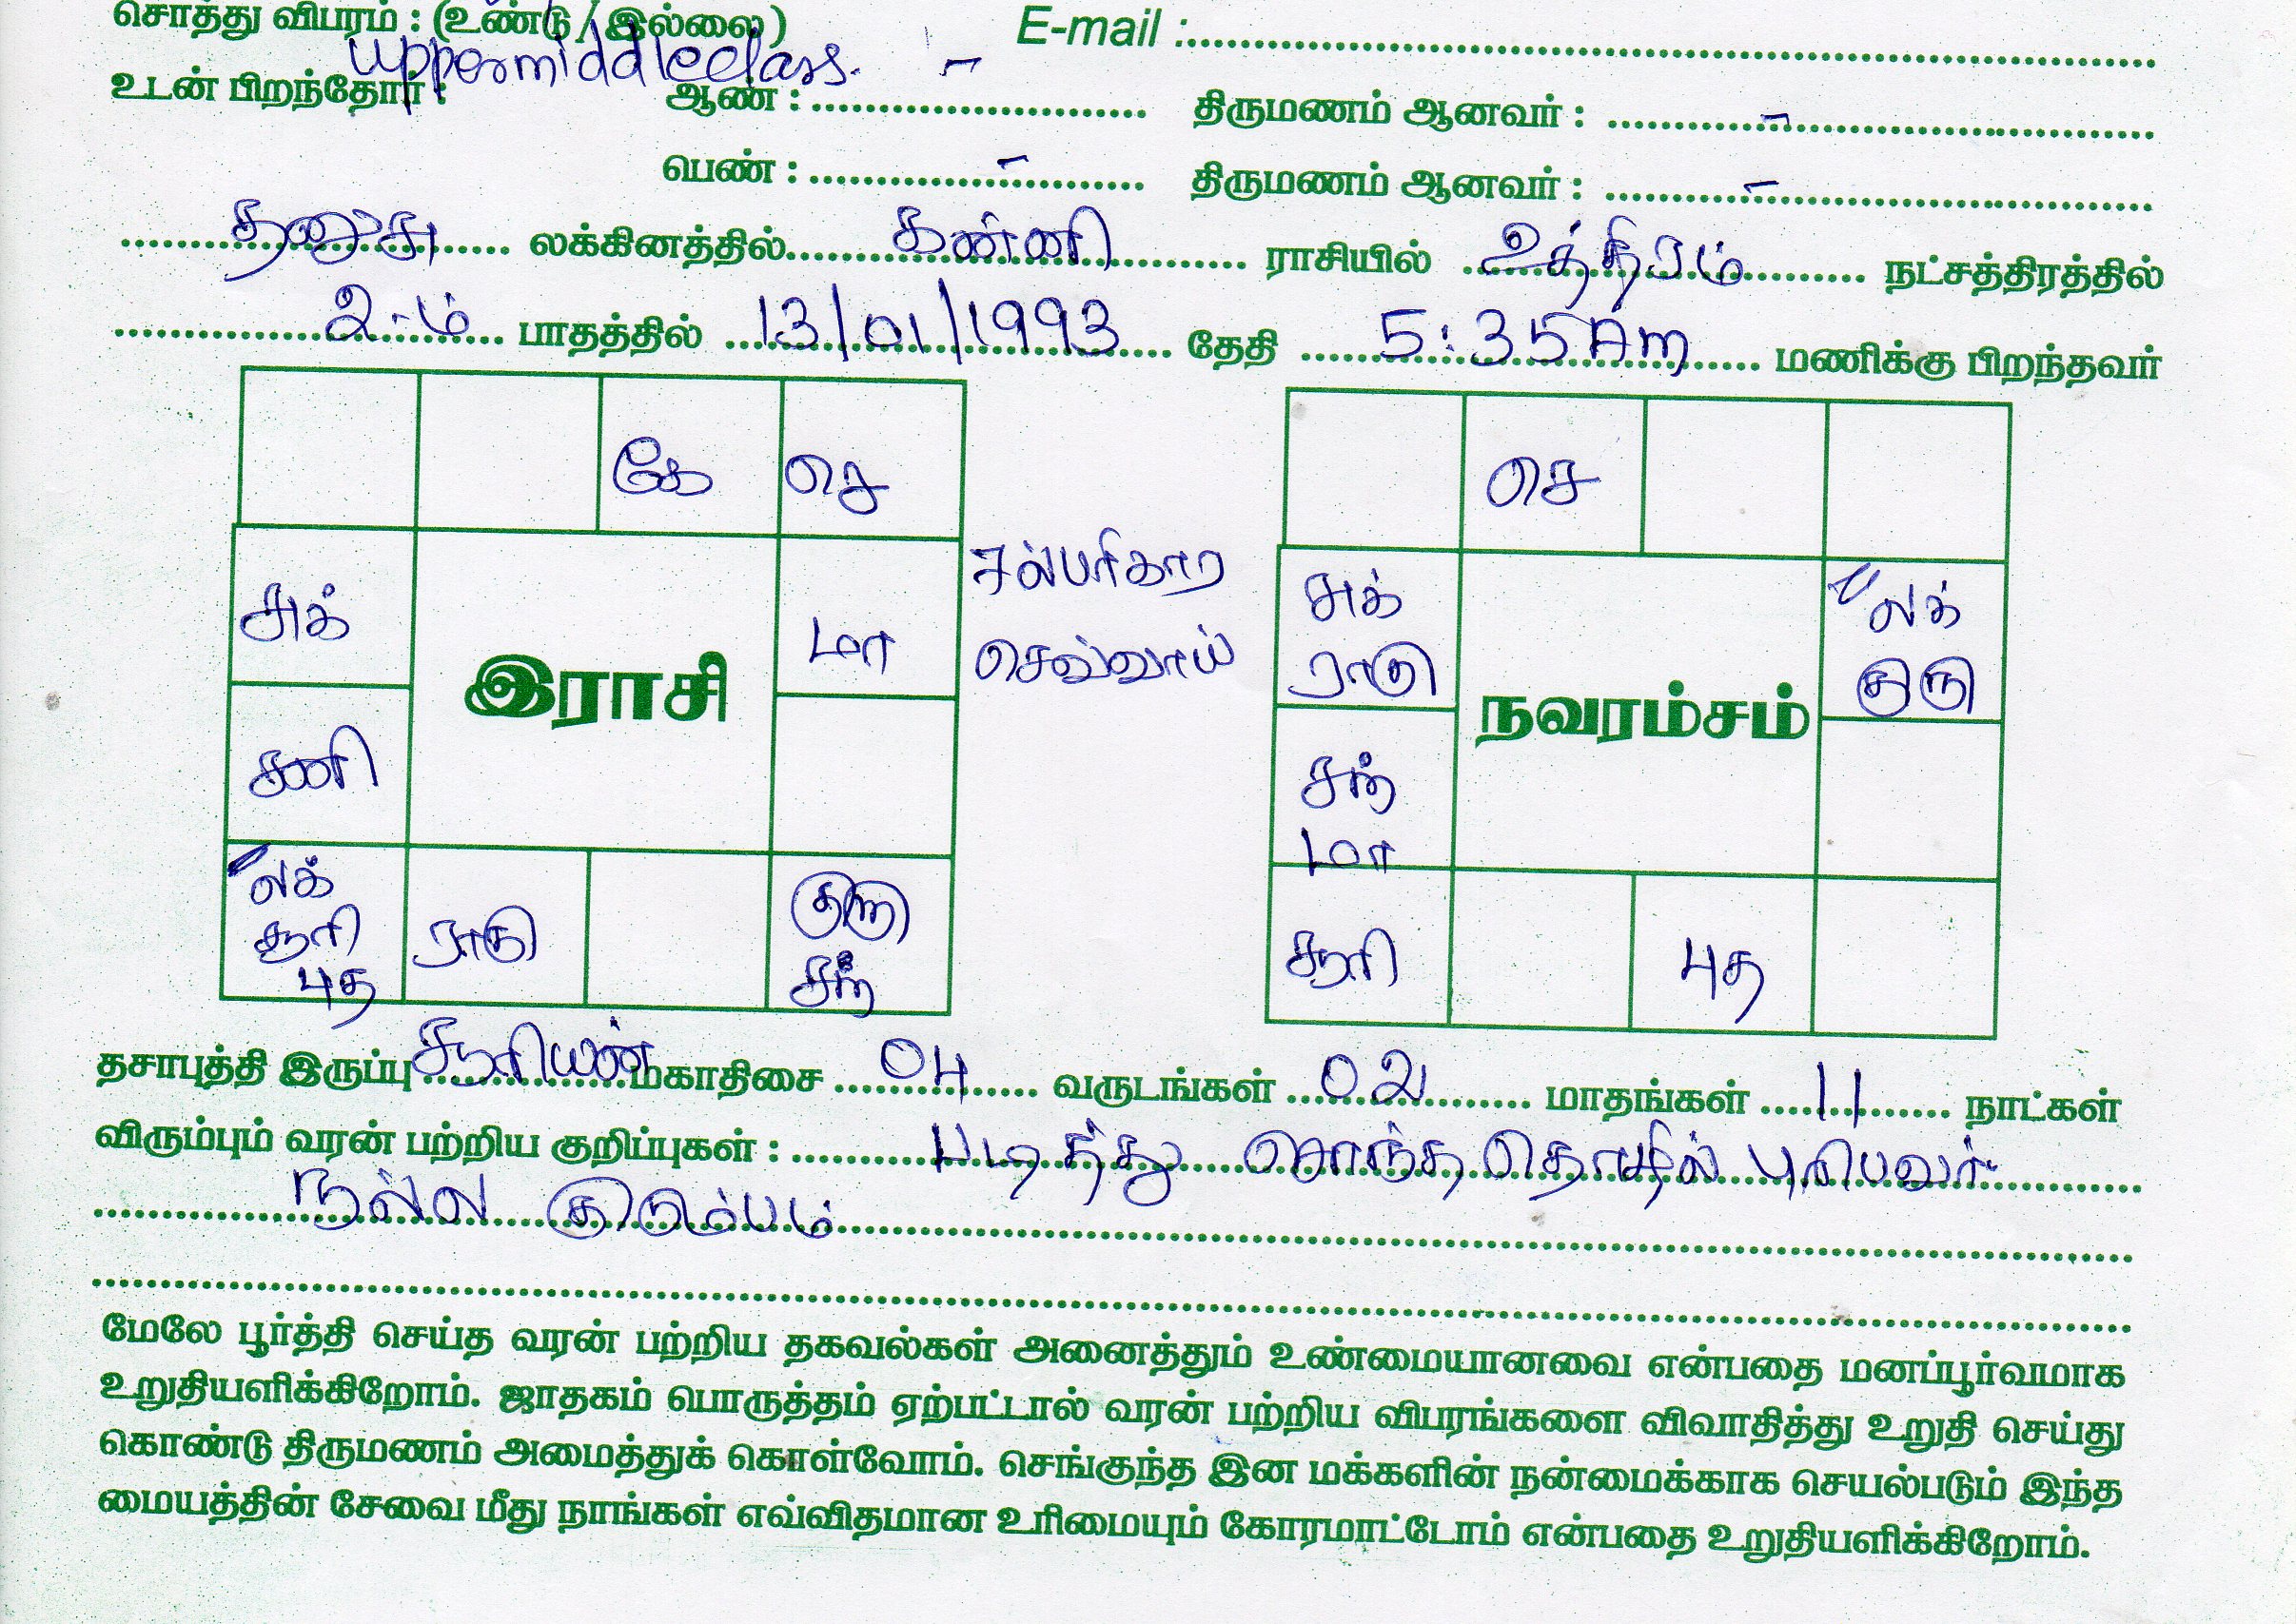 சொத்து விபரம் : (உண்டு / இல்லை) E-mail :
uppermiddleclass. -
உடன் பிறந்தோர் : ஆண் : திருமணம் ஆனவர் : -
பெண் : - திருமணம் ஆனவர் : -
தனுசு லக்கினத்தில் கன்னி ராசியில் உத்திரம் நட்சத்திரத்தில்
2-ம் பாதத்தில் 13/01/1993 தேதி 5:35 Am மணிக்கு பிறந்தவர்
கே செ
சுக்
மா
இராசி
சனி
லக்
சூரி
புத
ராகு
குரு
சந்
செவ்வாய்
செ
சுக்
ராகு
லக்
குரு
நவரம்சம்
சந்
மா
சூரி
புத
தசாபுத்தி இருப்பு சூரியன் மகாதிசை 04 வருடங்கள் 02 மாதங்கள் 11 நாட்கள்
விரும்பும் வரன் பற்றிய குறிப்புகள் : படித்து சொந்த தொழில் புரிபவர்
நல்ல குடும்பம்
மேலே பூர்த்தி செய்த வரன் பற்றிய தகவல்கள் அனைத்தும் உண்மையானவை என்பதை மனப்பூர்வமாக
உறுதியளிக்கிறோம். ஜாதகம் பொருத்தம் ஏற்பட்டால் வரன் பற்றிய விபரங்களை விவாதித்து உறுதி செய்து
கொண்டு திருமணம் அமைத்துக் கொள்வோம். செங்குந்த இன மக்களின் நன்மைக்காக செயல்படும் இந்த
மையத்தின் சேவை மீது நாங்கள் எவ்விதமான உரிமையும் கோரமாட்டோம் என்பதை உறுதியளிக்கிறோம்.